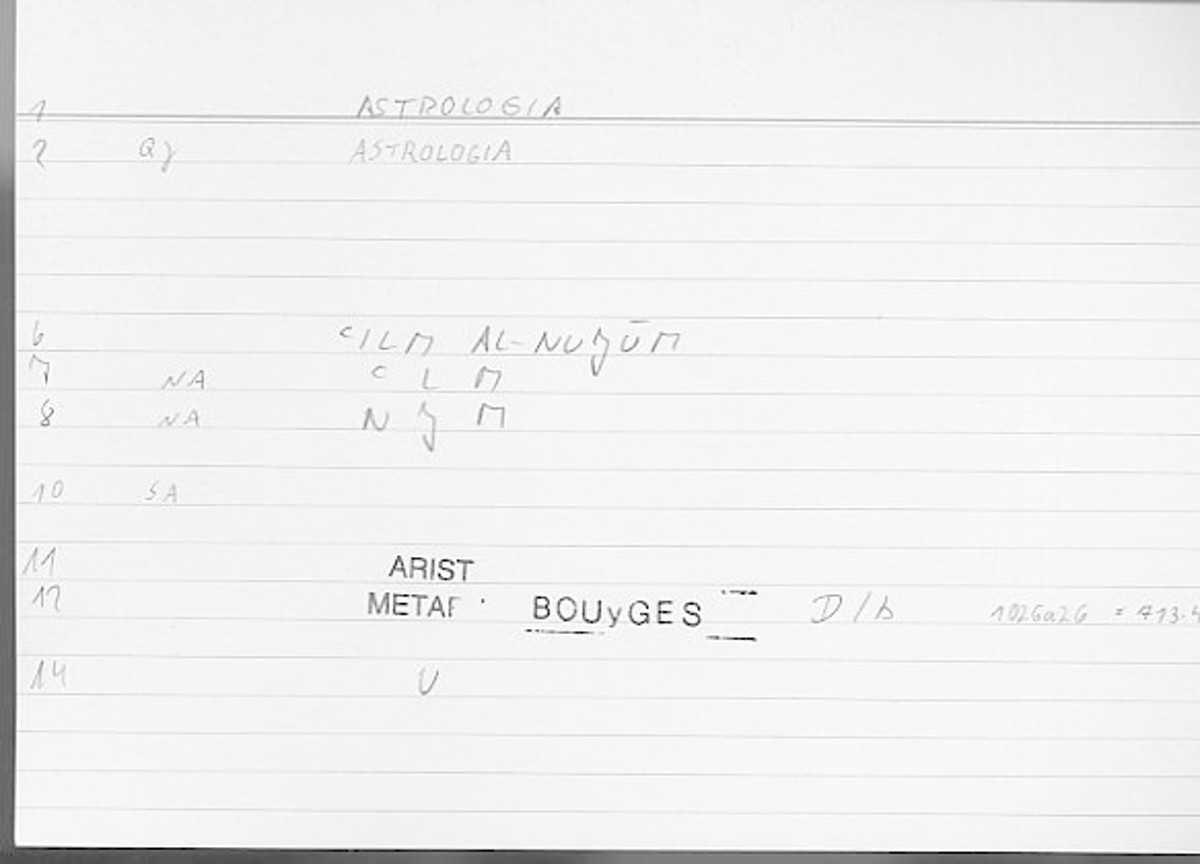 1 ASTROLOGIA
2 Qγ ASTROLOGIA
6 ʿILM AL-NUǧŪM
7 NA ʿ L M
8 NA N ǧ M
10 SA
11 ARIST
12 BOUyGES D/b 1026a26 = 713.4
14 U